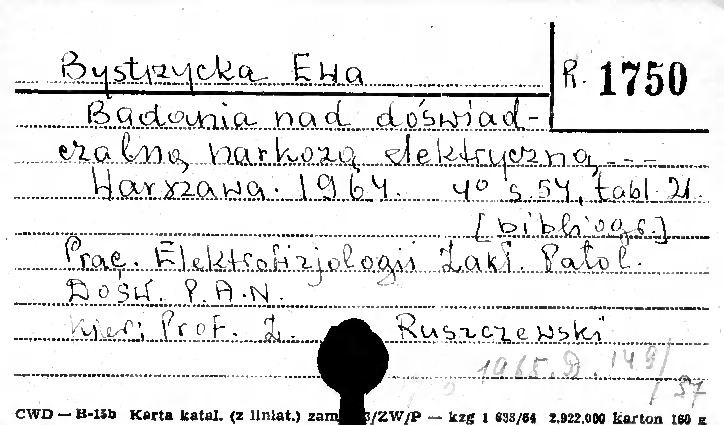 Bystrzycka Ewa
R. 1750
Badania nad doświad-
czalną narkozą elektryczną ---
Warszawa. 1964. 4° s. 54, tabl. 21.
[bibliogr.]
Prac. Elektrofizjologii Zakł. Patol.
Dośw. P.A.N.
Kier; Prof. Z. Ruszczewski
1965. D. 149/
/57
CWD — H-15b Karta katal. (z liniat.) zam. 3/ZW/P — kzg 1 633/64 2.922.000 Karton 160 g